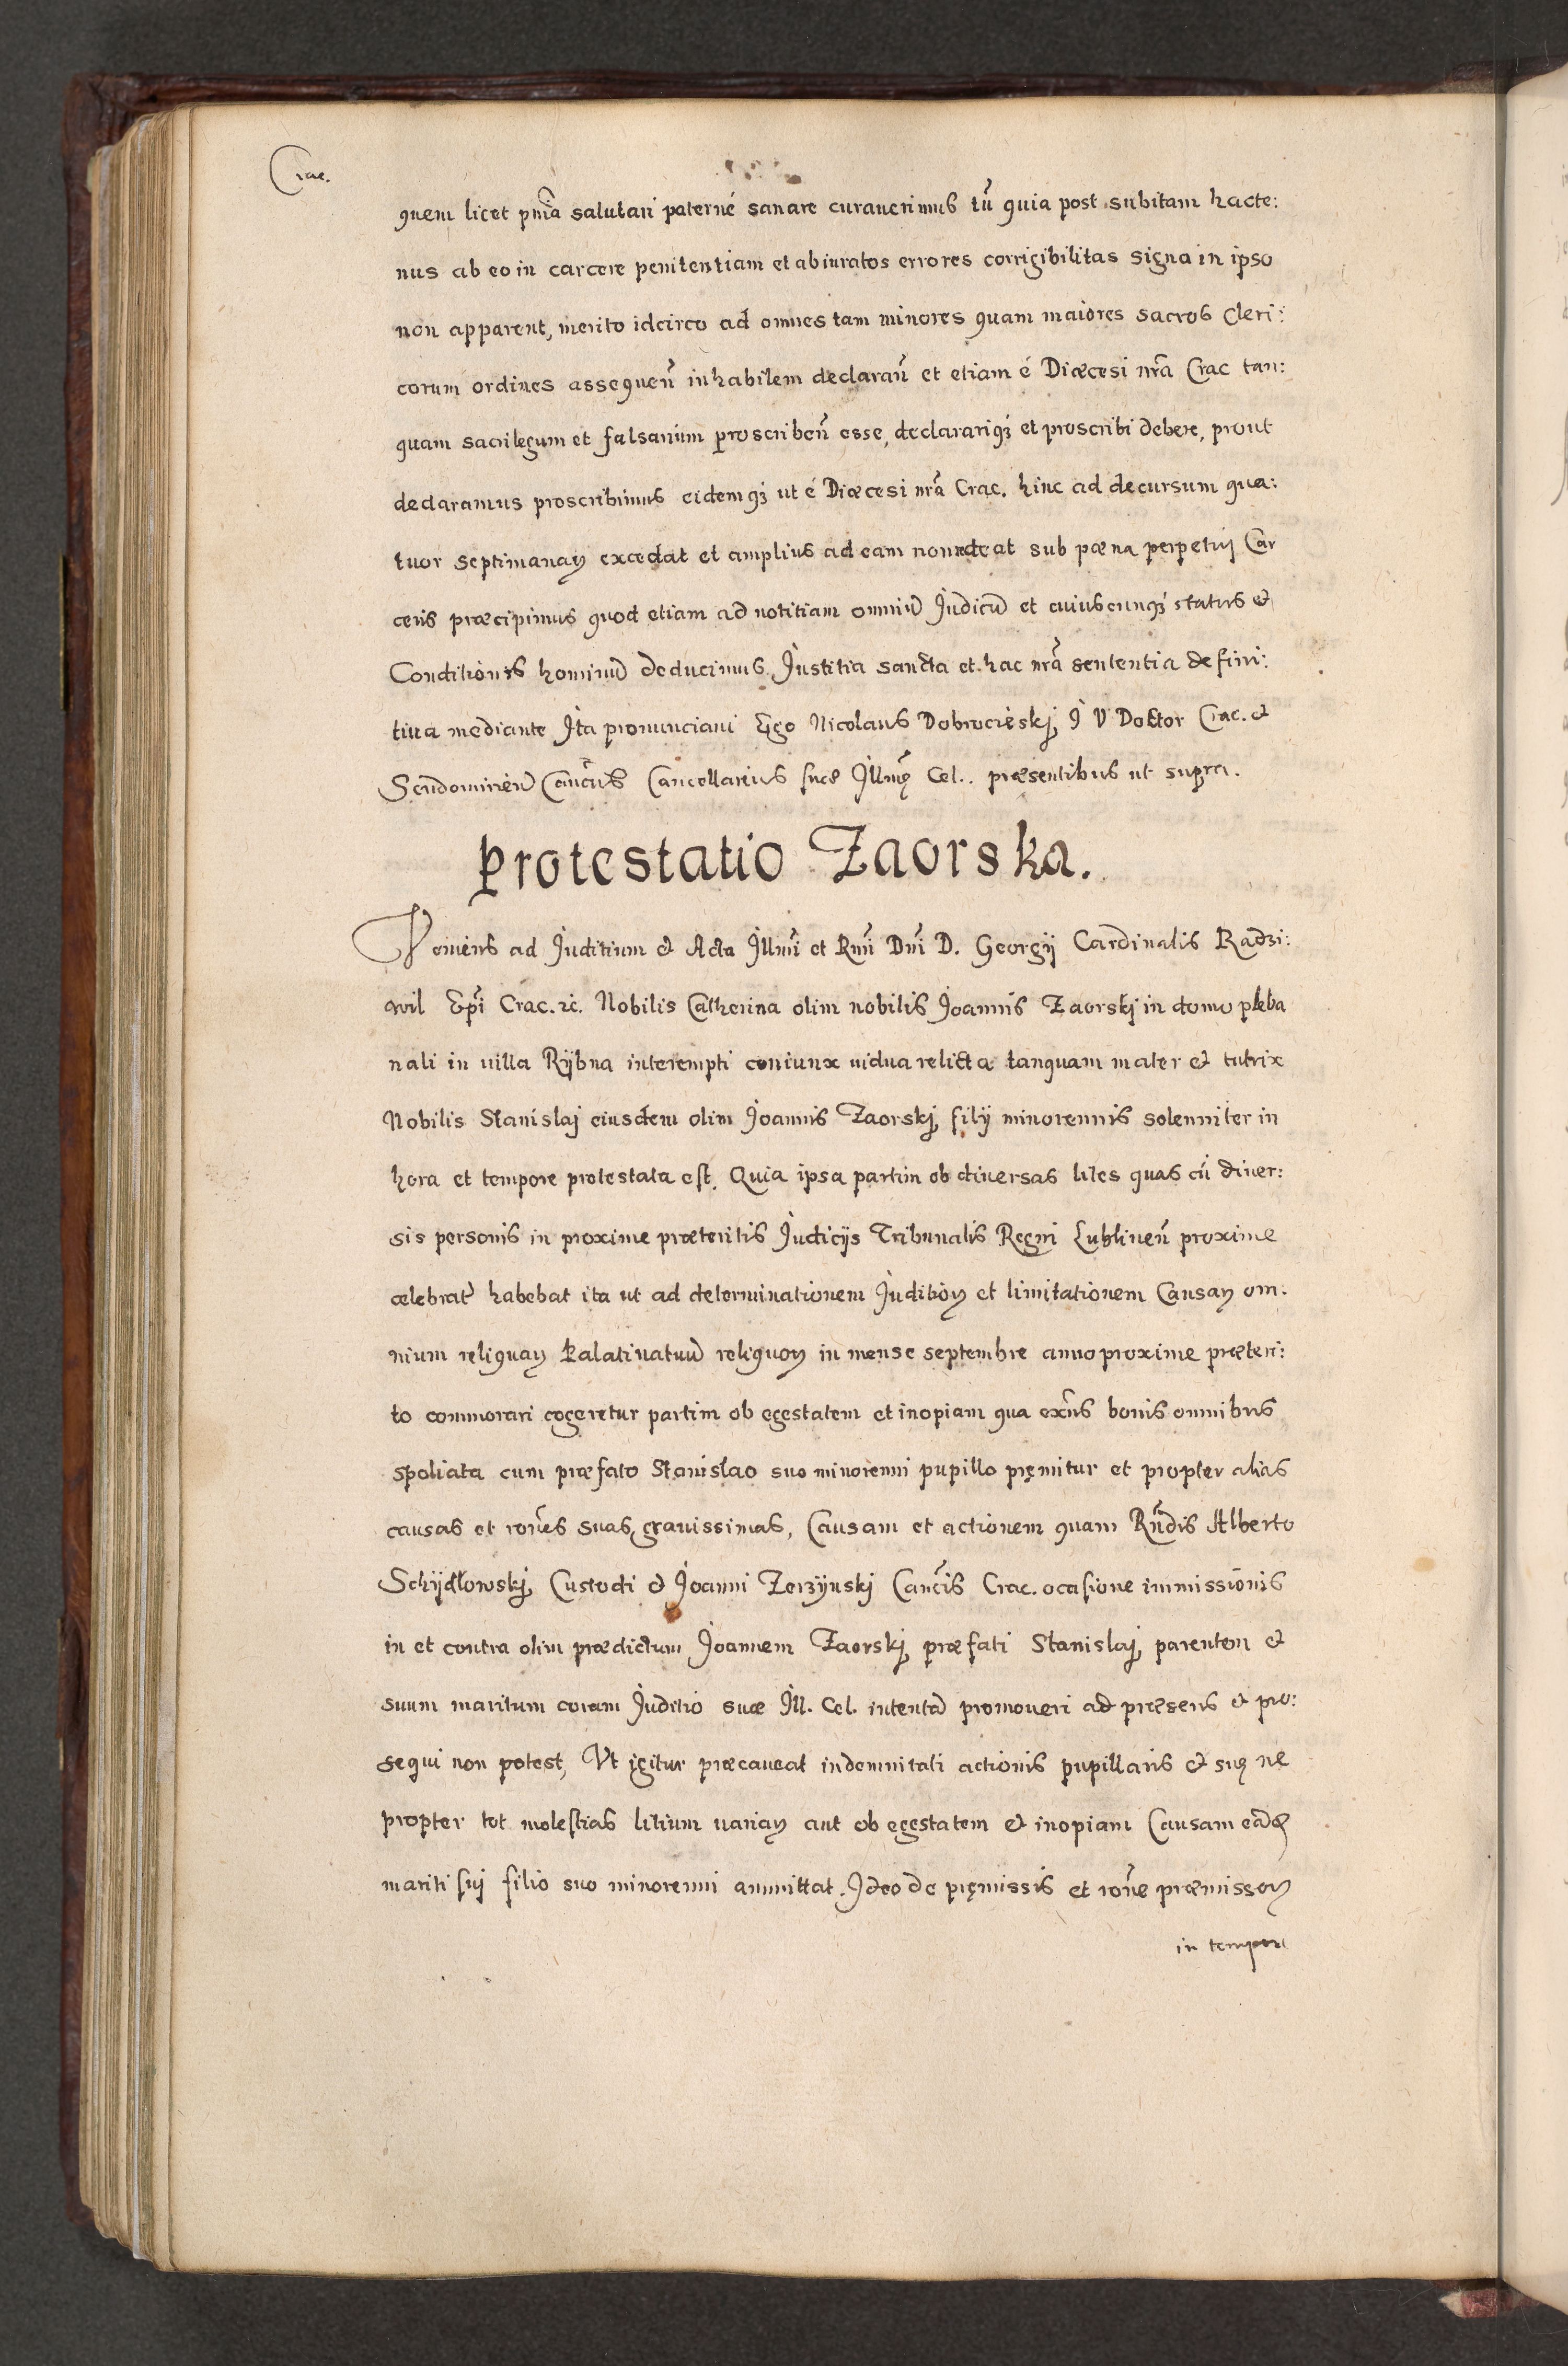 Crac.
quem licet pnia salutari paterné sanare curauerimus tũ quia post subitam hacte:
nus ab eo in carcere penitentiam et abiuratos errores corrigibilitas signa in ipso
non apparent, merito idcirco ad omnes tam minores quam maiores sacros Cleri:
corum ordines assequeñ inhabilem declarañ et etiam é Diœcesi nrã Crac tan:
quam sacrilegum et falsarium proscribeñ esse, declarariq3 et proscribi debere, prout
declaramus proscribimus eidemq3 ut é Diœcesi nrã Crac. hinc ad decursum qua:
tuor septimanaꝝ excedat et amplius ad eam non redeat sub pœna perpetuj Car
ceris præcipimus quod etiam ad notitiam omniũ Judicũ et cuiuscunq3 status et
Conditionis hominũ deducimus. Justitia sancta et hac nrã sententia defini:
tiua mediante Ita pronunciaui Ego Nicolaus Dobrocieskj, J V Doktor Crac. et
Sendomirieñ Cancus Cancellarius suæ Illmę Cel.. præsentibus ut supra.
Protestatio Zaorska.
Veniens ad Juditium et Acta Illmi et Rmi Dni D. Georgij Cardinalis Radzi:
wil Epi Crac. 2c. Nobilis Catherina olim nobilis Joannis Zaorskj in domo pleba
nali in uilla Rybna interempti coniunx uidua relicta tanquam mater et tutrix
Nobilis Stanislaj eiusdem olim Joannis Zaorskj, filij minorennis solenniter in
hora et tempore protestata est. Quia ipsa partim ob diuersas lites quas cũ diuer:
sis personis in proxime præteritis Judicijs Tribunalis Regni Lublineñ proxime
celebrat habebat ita ut ad determinationem Juditioꝝ et limitationem Causaꝝ om:
nium reliquaꝝ Palatinatuũ reliquoꝝ in mense septembre anno proxime præteri:
to commorari cogeretur partim ob egestatem et inopiam qua exñs bonis omnibus
spoliata cum præfato Stanislao suo minorenni pupillo pręmitur et propter alias
causas et rones suas grauissimas, Causam et actionem quam Rndis Alberto
Schydłowskj, Custodi et Joanni Zerzynskj Cancis Crac. ocasione immissionis
in et contra olim prædictum Joannem Zaorskj, præfati Stanislaj, parentem et
suum maritum coram Juditio suæ Ill. Cel. intentã promoueri ad præsens et pro:
sequi non potest, Vt igitur præcaueat indemnitati actionis pupillaris et suę ne
propter tot molestias litium uariaꝝ aut ob egestatem et inopiam Causam eadẽ
mariti suj filio suo minorenni ammittat. Ideo de pręmissis et rone præmissoꝝ
in tempore